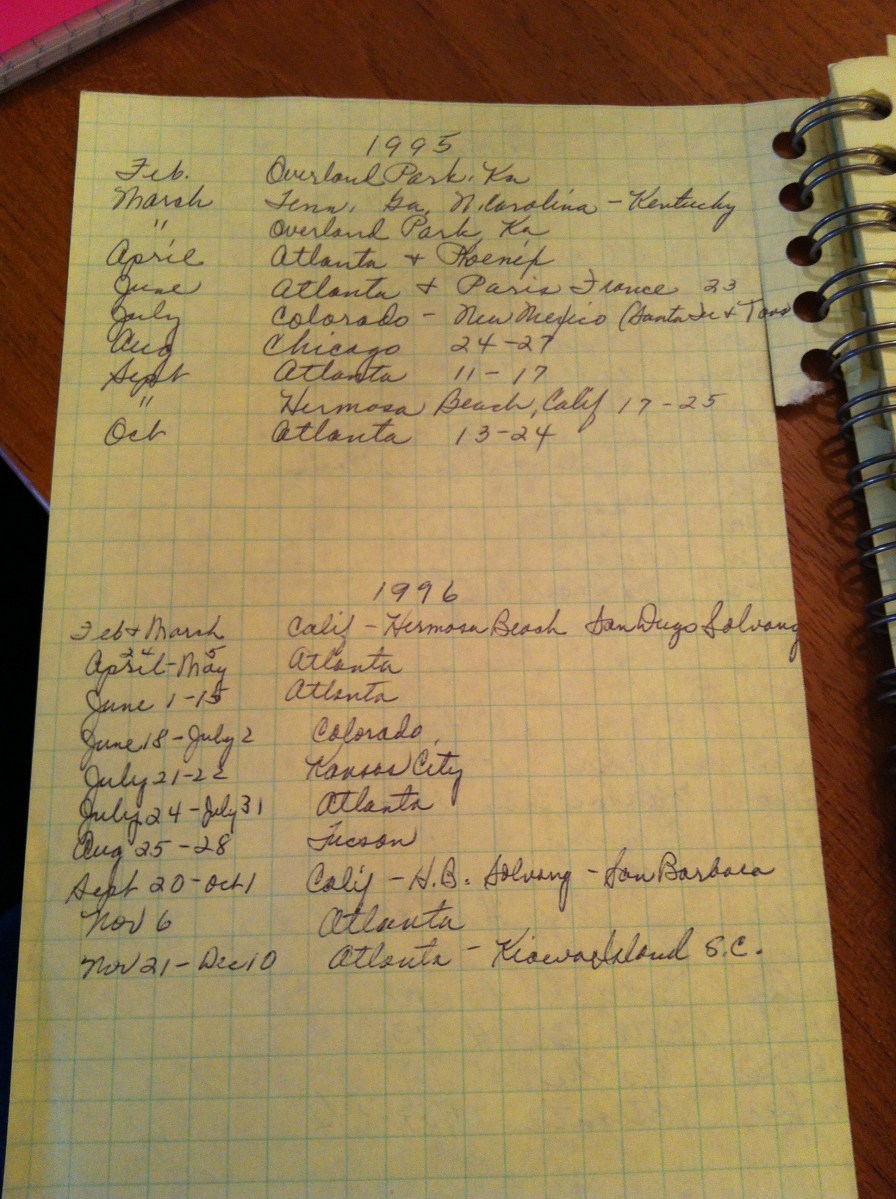 1995
Feb. Overland Park, Ka
March Tenn, Ga, N. Carolina - Kentucky
" Overland Park, Ka
April Atlanta & Phoenix
June Atlanta & Paris France 23
July Colorado - New Mexico (Santa Fe & Taos
Aug Chicago 24-27
Sept Atlanta 11-17
" Hermosa Beach, Calif 17-25
Oct Atlanta 13-24
1996
Feb & March Calif - Hermosa Beach San Diego Solvang
April 24 - May 5 Atlanta
June 1-15 Atlanta
June 18 - July 2 Colorado,
July 21-22 Kansas City
July 24 - July 31 Atlanta
Aug 25-28 Tucson
Sept 20 - Oct 1 Calif - H.B. Solvang - San Barbara
Nov 6 Atlanta
Nov 21 - Dec 10 Atlanta - Kiawa Island S.C.